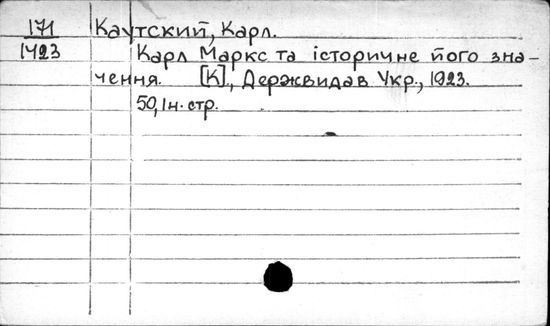 171 Каутский, Карл.
1423 Карл Маркс та історичне його зна-
чення. [К]., Держвидав Укр., 1923.
50, Iн. стр.